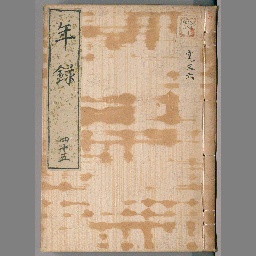 年録
四十五
寛文六